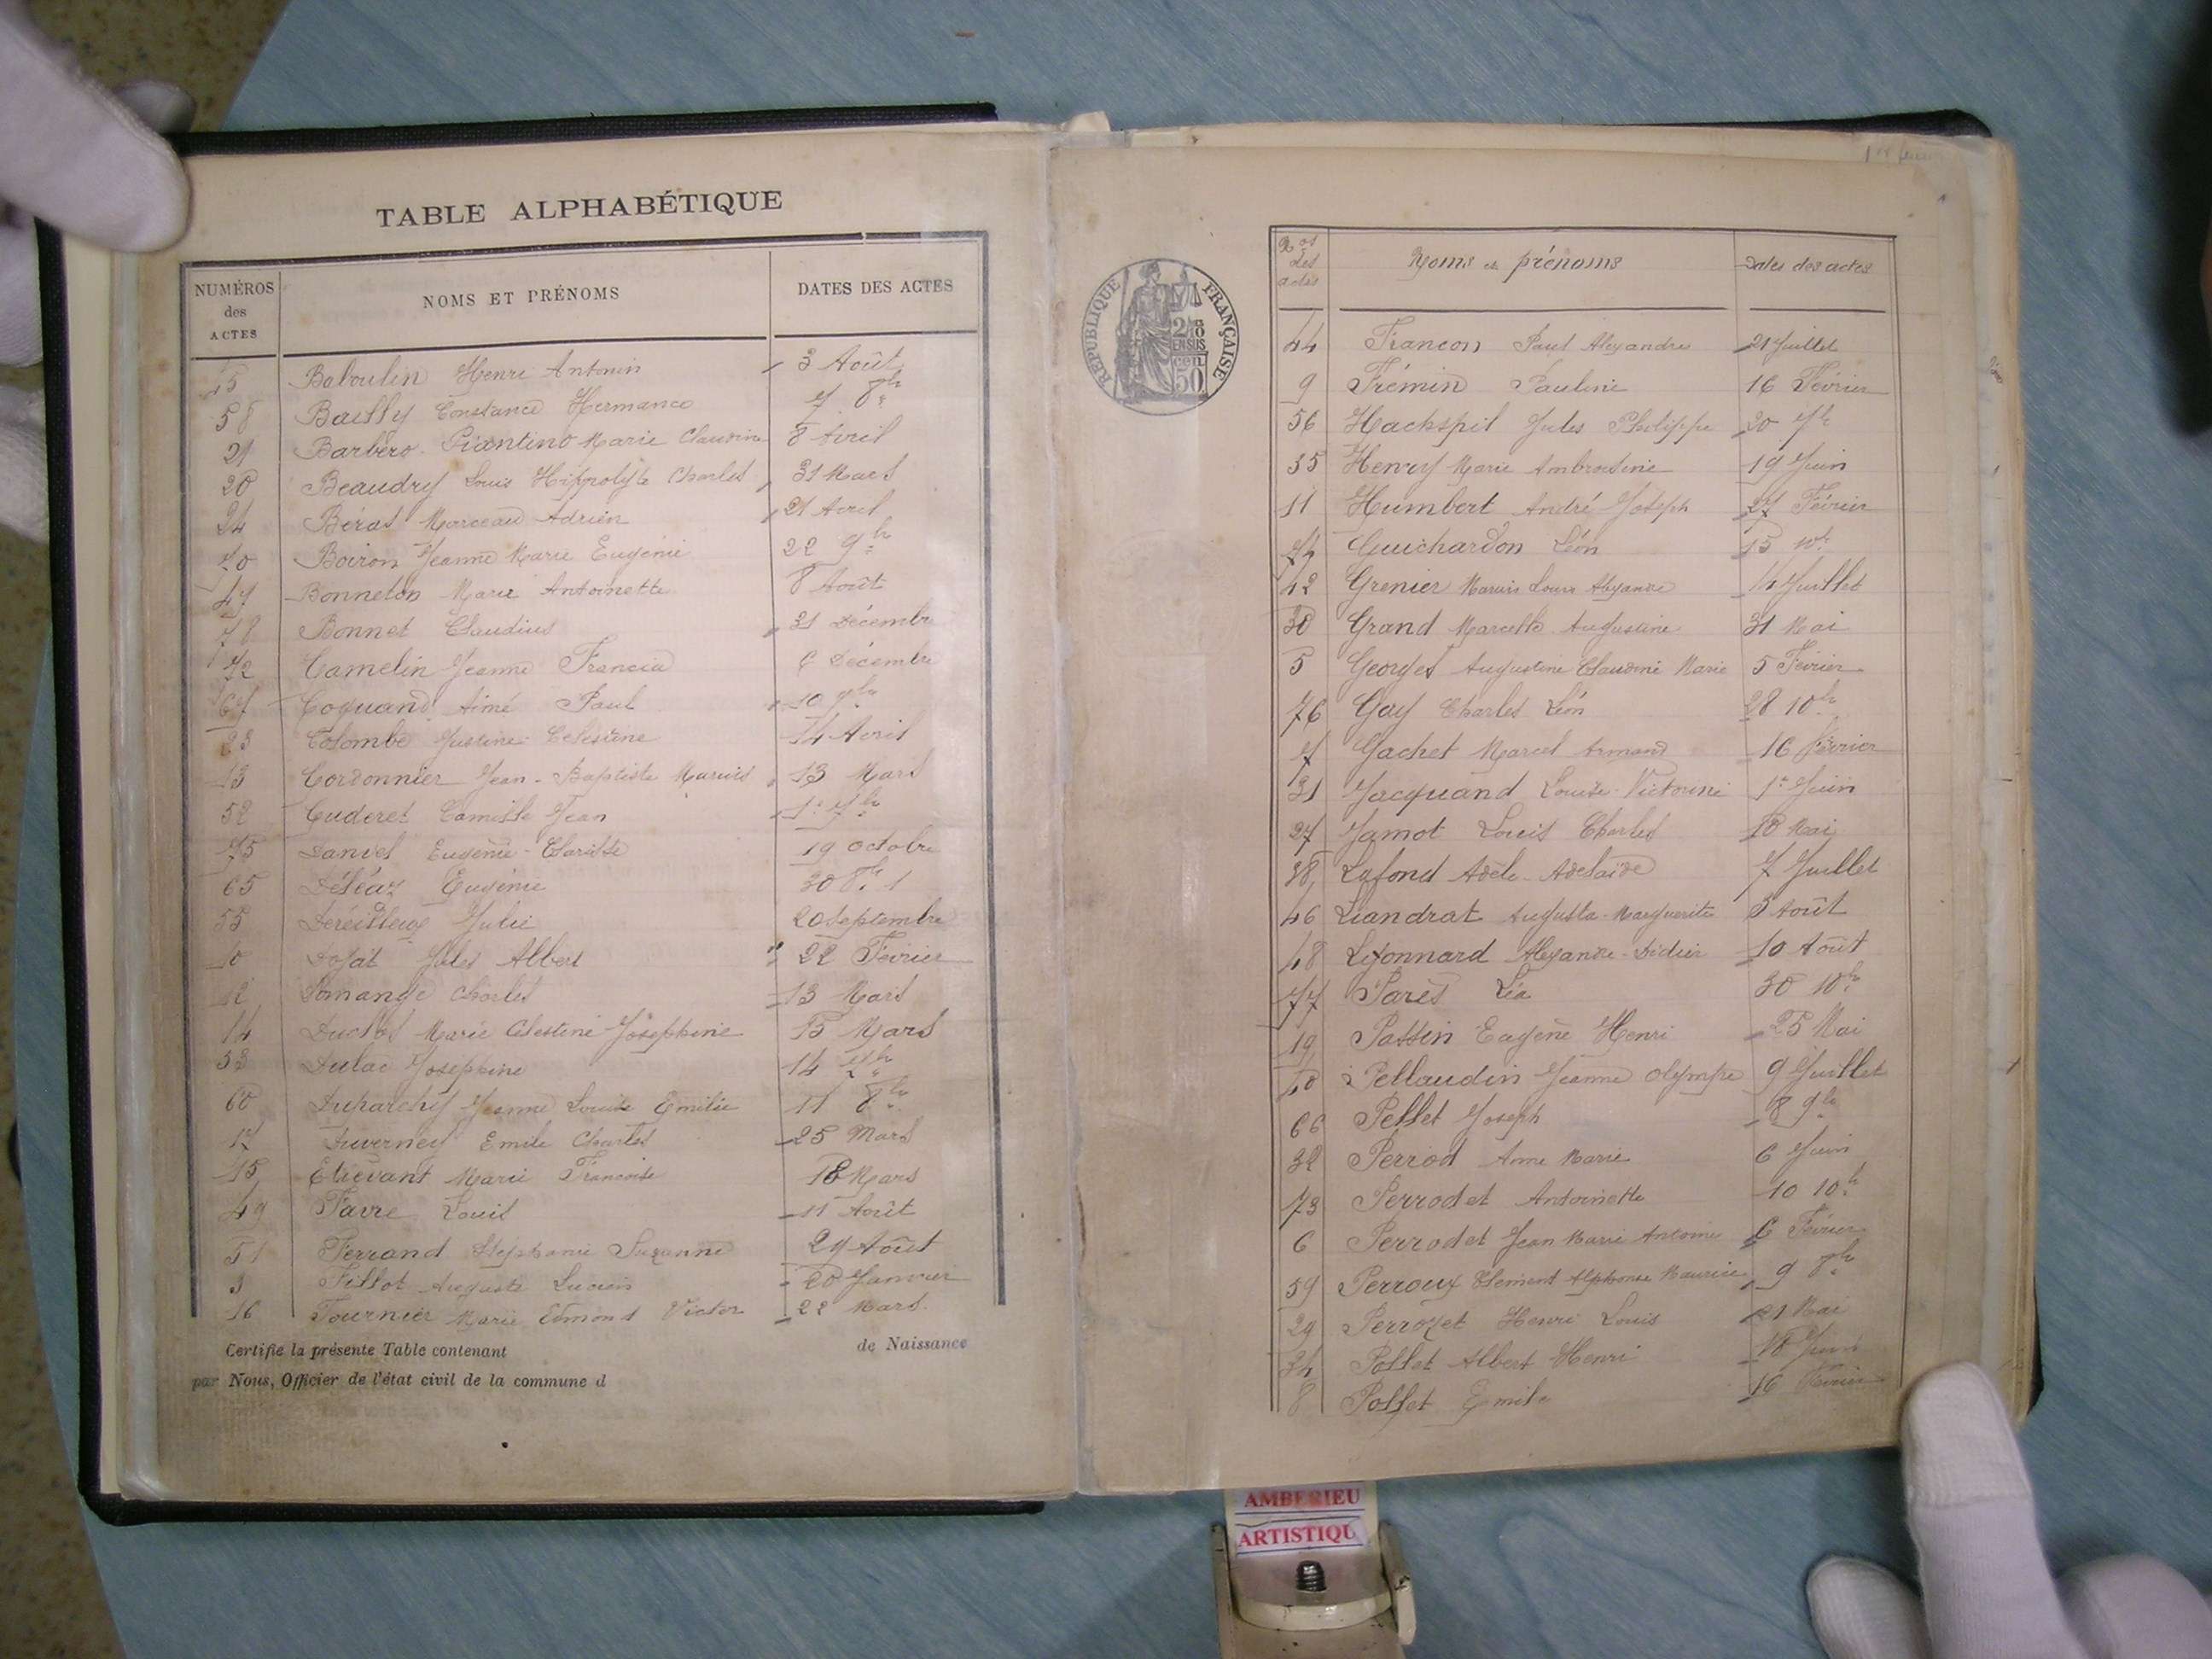 TABLE ALPHABÉTIQUE
NUMÉROS des ACTES NOMS ET PRÉNOMS DATES DES ACTES
Baboulin Henri Antonin 3 Août
58 Bailly Constance Hermance 7 8bre
21 Barbero-Piantino Marie Claudine 8 Avril
20 Beaudry Louis Hippolyte Charles 31 Mars
24 Béras Marceau Adrien 21 Avril
70 Boiron Jeanne Marie Eugénie 22 9bre
47 Bonneton Marie Antoinette 8 Août
78 Bonnet Claudius 31 Décembre
72 Camelin Jeanne Francia 6 Décembre
67 Coquand Aimé Paul 10 9bre
23 Colombe Justine Celestine 14 Avril
13 Cordonnier Jean-Baptiste Marius 13 Mars
52 Cuderet Camille Jean 1er 7bre
75 Daniel Eugénie-Clarisse 19 Octobre
65 Déléaz Eugénie 30 8bre
55 Julie 20 Septembre
10 Jules Albert 22 Février
12 Domange Charles 13 Mars
14 Duclos Marie Célestine Joséphine 15 Mars
53 Dulac Joséphine 14 7bre
60 Duparchy Jeanne Louise Emilie 11 8bre
17 Duverney Emile Charles 25 Mars
15 Etiévant Marie Françoise 18 Mars
49 Favre Louis 11 Août
51 Ferrand Stéphanie Suzanne 29 Août
3 Fillot Auguste Lucien 20 Janvier
16 Fournier Marie Edmond Victor 22 Mars
Certifie la présente Table contenant de Naissance
par Nous, Officier de l'état civil de la commune d
RÉPUBLIQUE FRANÇAISE
50
Nos des actes Noms et prénoms Dates des actes
44 Francon Paul Alexandre 21 Juillet
9 Frémin Pauline 16 Février
56 Hackspil Jules Philippe 20 7bre
35 Henry Marie Ambroisine 19 Juin
11 Humbert André Joseph 27 Février
74 Guichardon Léon 15 10bre
42 Grenier Marius Louis Alexandre 14 Juillet
30 Grand Marcelle Augustine 31 Mai
5 Georges Augustine Claudine Marie 5 Février
76 Gay Charles Léon 28 10bre
7 Gachet Marcel Armand 16 Février
31 Jacquand Louise Victorine 1er Juin
27 Jamot Louis Charles 18 Mai
38 Lafond Adèle-Adelaïde 7 Juillet
46 Liandrat Augusta-Marguerite 5 Août
48 Lyonnard Alexandre-Didier 10 Août
77 Pares Léa 30 10bre
19 Passin Eugène Henri 25 Mai
40 Pellaudin Jeanne Olympe 9 Juillet
66 Pellet Joseph 8 9bre
32 Perrod Anne Marie 6 Juin
73 Perrodet Antoinette 10 10bre
6 Perrodet Jean Marie Antoine 6 Février
59 Perroux Clément Alphonse Maurice 9 8bre
29 Perrozet Henri Louis 21 Mai
34 Pollet Albert Henri 18 Juin
8 Pollet Emile 16 Février
AMBERIEU
ARTISTIQU